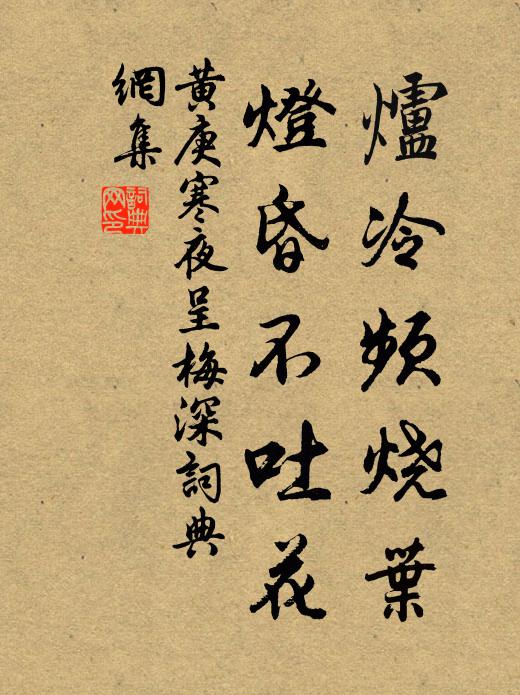 爐冷頻烧葉
燈昏不吐花
黄庚寒夜呈梅深詞典
網集
詞典
网印